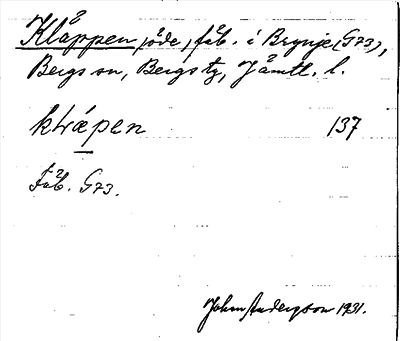 Kläppen, öde, fäb. i Brynje (G73),
Bergs sn, Bergs tg, Jämtl. l.
klǽpen 137
Fäb. G73.
Johan Andersson 1931.